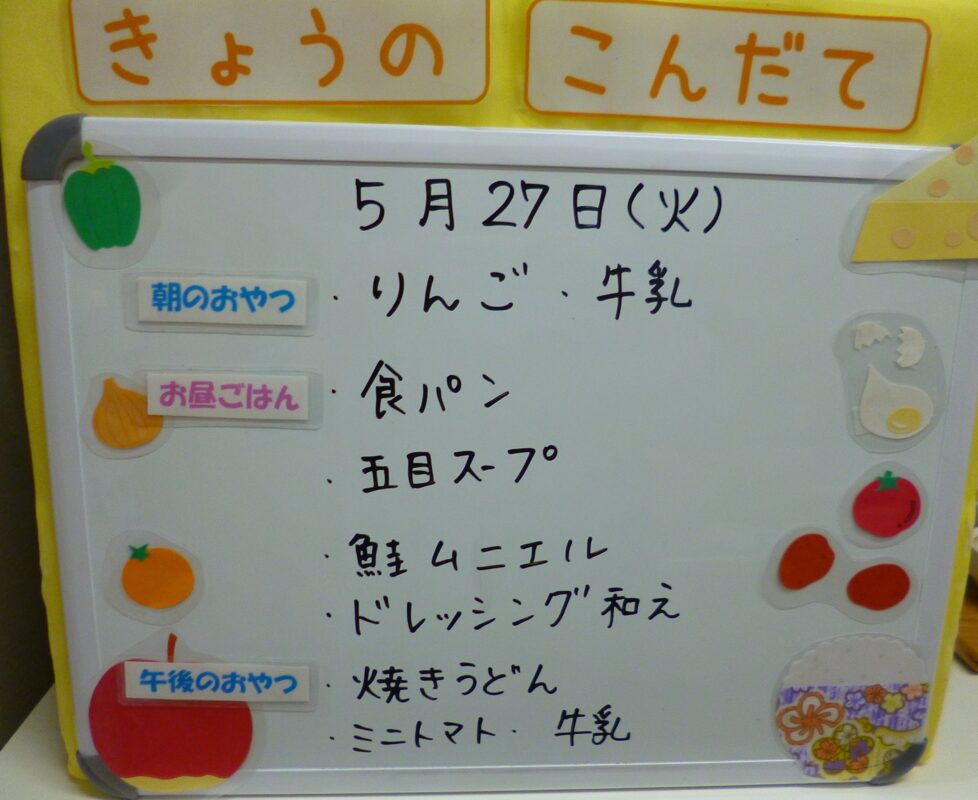 きょうの こんだて
5月27日(火)
朝のおやつ ・りんご・牛乳
お昼ごはん ・食パン
・五目スープ
・鮭ムニエル
・ドレッシング和え
午後のおやつ ・焼きうどん
・ミニトマト・牛乳